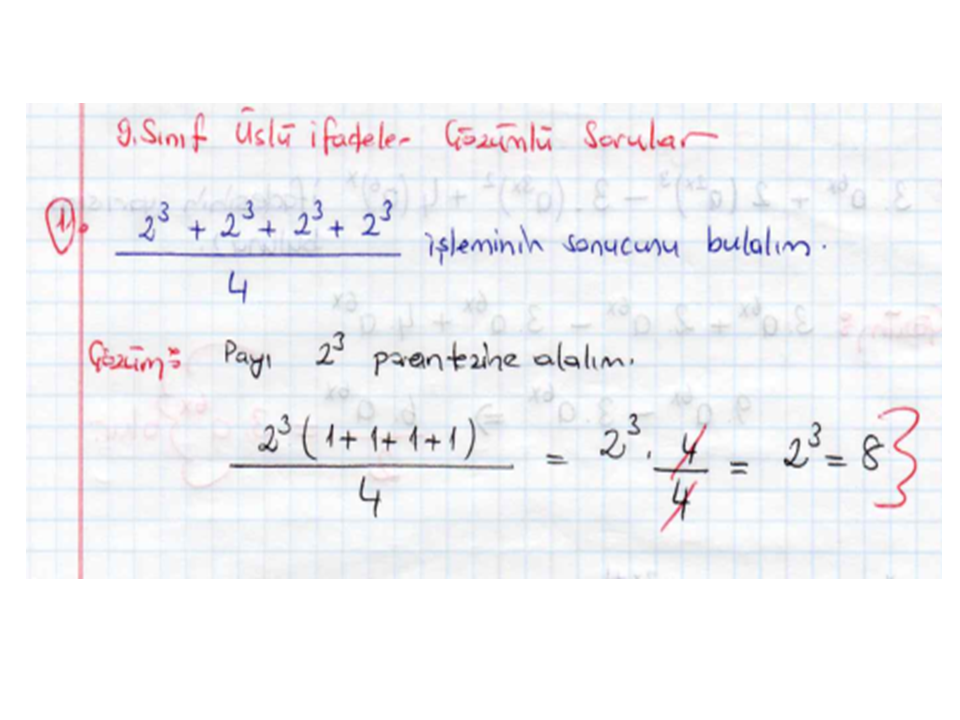 9.Sınıf Üslü ifadeler Çözümlü Sorular
1. (2³ + 2³ + 2³ + 2³) / 4 işleminin sonucunu bulalım.
Çözüm: Payı 2³ parantezine alalım.
2³(1+1+1+1) / 4 = 2³ . 4/4 = 2³ = 8